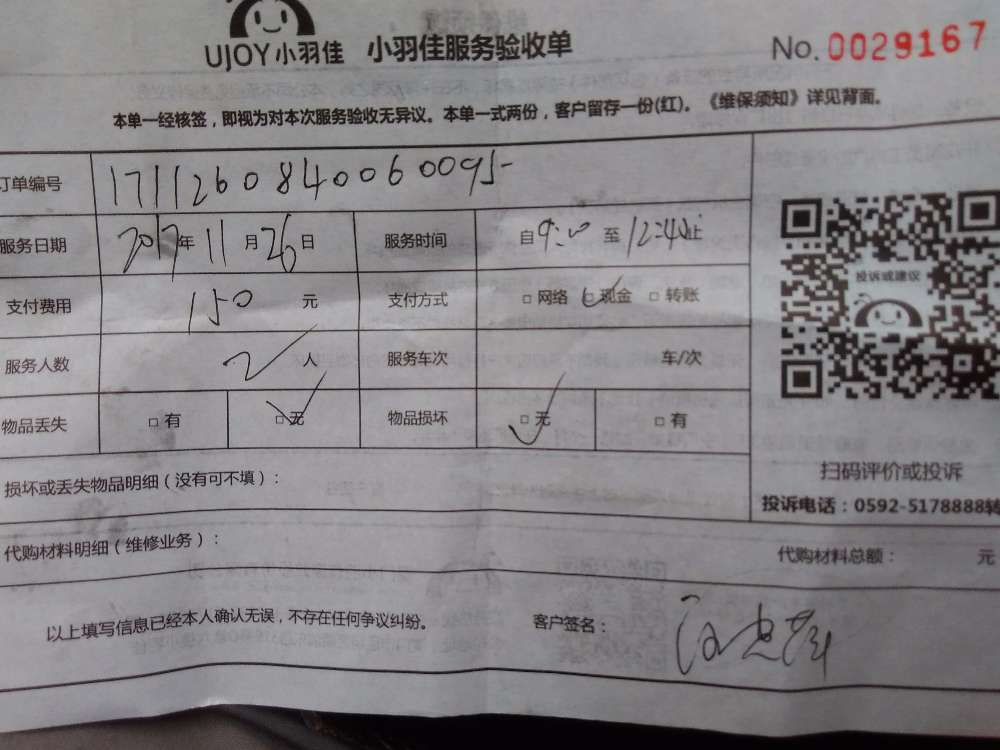 UJOY小羽佳 小羽佳服务验收单 No.0029167
本单一经核签，即视为对本次服务验收无异议。本单一式两份，客户留存一份(红)。《维保须知》详见背面。
订单编号 1711260840060095
服务日期 2017年11月26日 服务时间 自9:00至12:40止
支付费用 150 元 支付方式 □网络 □现金 □转账
投诉或建议
服务人数 2 人 服务车次 车/次
物品丢失 □有 □无 物品损坏 □无 □有
扫码评价或投诉
损坏或丢失物品明细（没有可不填）：
投诉电话：0592-5178888转
代购材料明细（维修业务）： 代购材料总额： 元
以上填写信息已经本人确认无误，不存在任何争议纠纷。 客户签名：